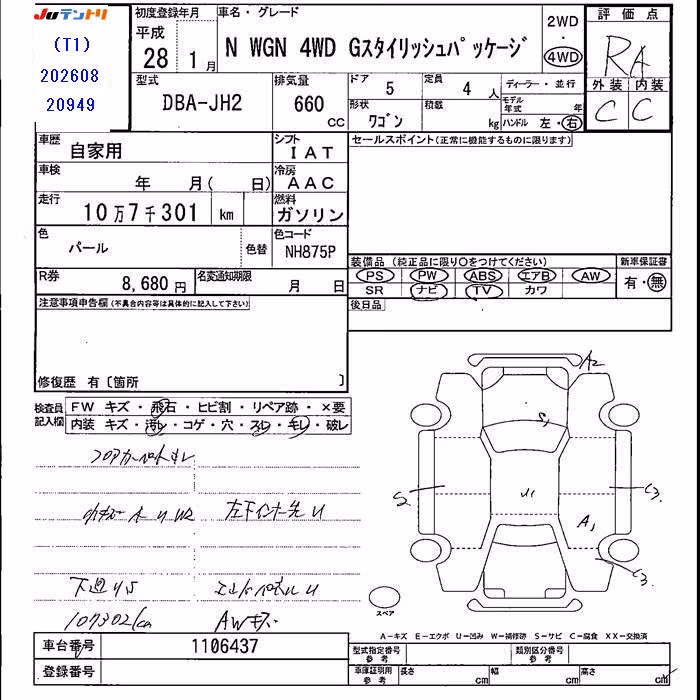 JUテントリ
(T1)
202608
20949
初度登録年月
平成
28 1 月
車名・グレード
N WGN 4WD Gスタイリッシュパッケージ
2WD
・
4WD
評価点
RA
外装 内装
C C
型式
DBA-JH2
排気量
660
CC
ドア
5
定員
4 人
形状
ワゴン
積載
kg
ディーラー・並行
モデル年式 年
ハンドル 左・右
車歴
自家用
シフト
IAT
車検
年 月( 日)
冷房
AAC
走行
10万7千301 km
燃料
ガソリン
色
パール
色替
色コード
NH875P
R券
8,680 円
名変通知期限
月 日
セールスポイント(正常に機能するものに限ります)
装備品 (純正品に限り○をつけてください)
PS PW ABS エアB AW
SR ナビ TV カワ
新車保証書
有・無
後日品
注意事項申告欄(不具合内容等は具体的に記入して下さい)
修復歴 有〔箇所 〕
検査員記入欄
FW キズ・飛石・ヒビ割・リペア跡・×要
内装 キズ・汚レ・コゲ・穴・スレ・キレ・破レ
フロアカーペットキレ
左下インナー先U
下廻りS
107302km
AWキズ
A2
S1
S2
U1
A1
C3
C3
スペア
A－キズ E－エクボ U－凹み W－補修跡 S－サビ C－腐食 XX－交換済
車台番号
1106437
登録番号
型式指定番号
参考
類別区分番号
参考
車庫証明用
参考
長さ cm
幅 cm
高さ cm